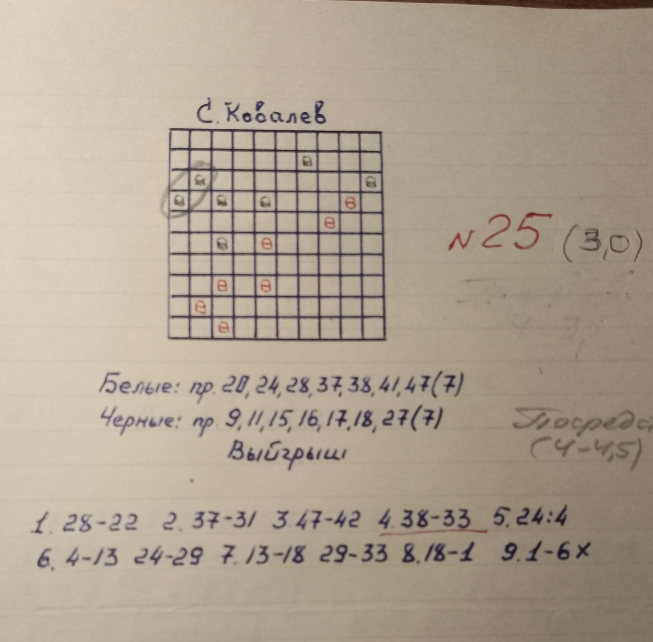 С. Ковалев
N 25 (3,0)
Белые: пр. 20, 24, 28, 37, 38, 41, 47 (7)
Черные: пр. 9, 11, 15, 16, 17, 18, 27 (7)
Выйгрыш
(4-4,5)
1. 28-22 2. 37-31 3. 47-42 4. 38-33 5. 24:4
6. 4-13 24-29 7. 13-18 29-33 8. 18-1 9. 1-6 x